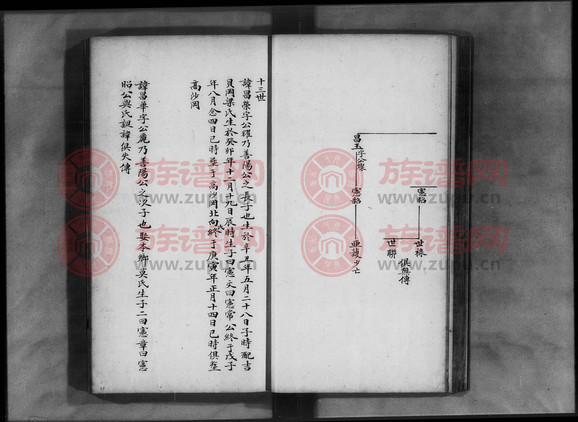 憲韜
世祿
俱無傳
世聯
昌玉
憲韜
亞
少亡
十三世
諱昌榮字公耀乃善陽公之長子也生於辛丑年五月二十八日子時配吉
貝岡梁氏生於癸卯年十二月十九日辰時生子曰憲文曰憲常公終于戊子
年八月念四日巳時塟于高沙岡北向終于庚寅年正月十四日巳時俱塟
高沙岡
諱昌華字公麃乃善陽公之次子也娶本鄉吳氏生子二曰憲章曰憲
昭公與氏誕諱俱失傳
族谱网
www.zupu.cn
族谱网
www.zupu.cn
族谱网
www.zupu.cn
族谱网
www.zupu.cn